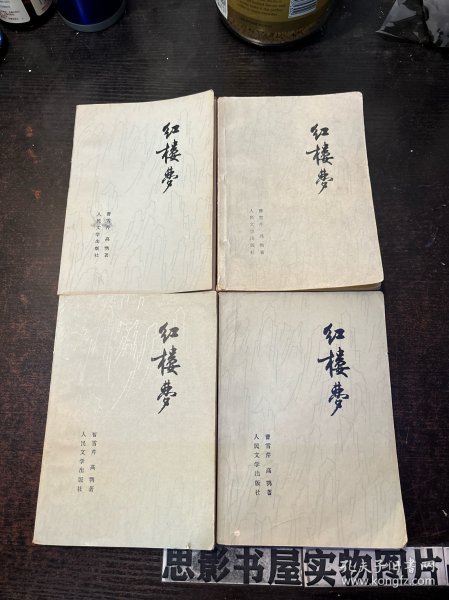 红楼梦
曹雪芹 高鹗著
人民文学出版社
红楼梦
曹雪芹 高鹗著
人民文学出版社
红楼梦
曹雪芹 高鹗著
人民文学出版社
红楼梦
曹雪芹 高鹗著
人民文学出版社
思影书屋实物图片
孔夫子旧书网
www.kongfz.com